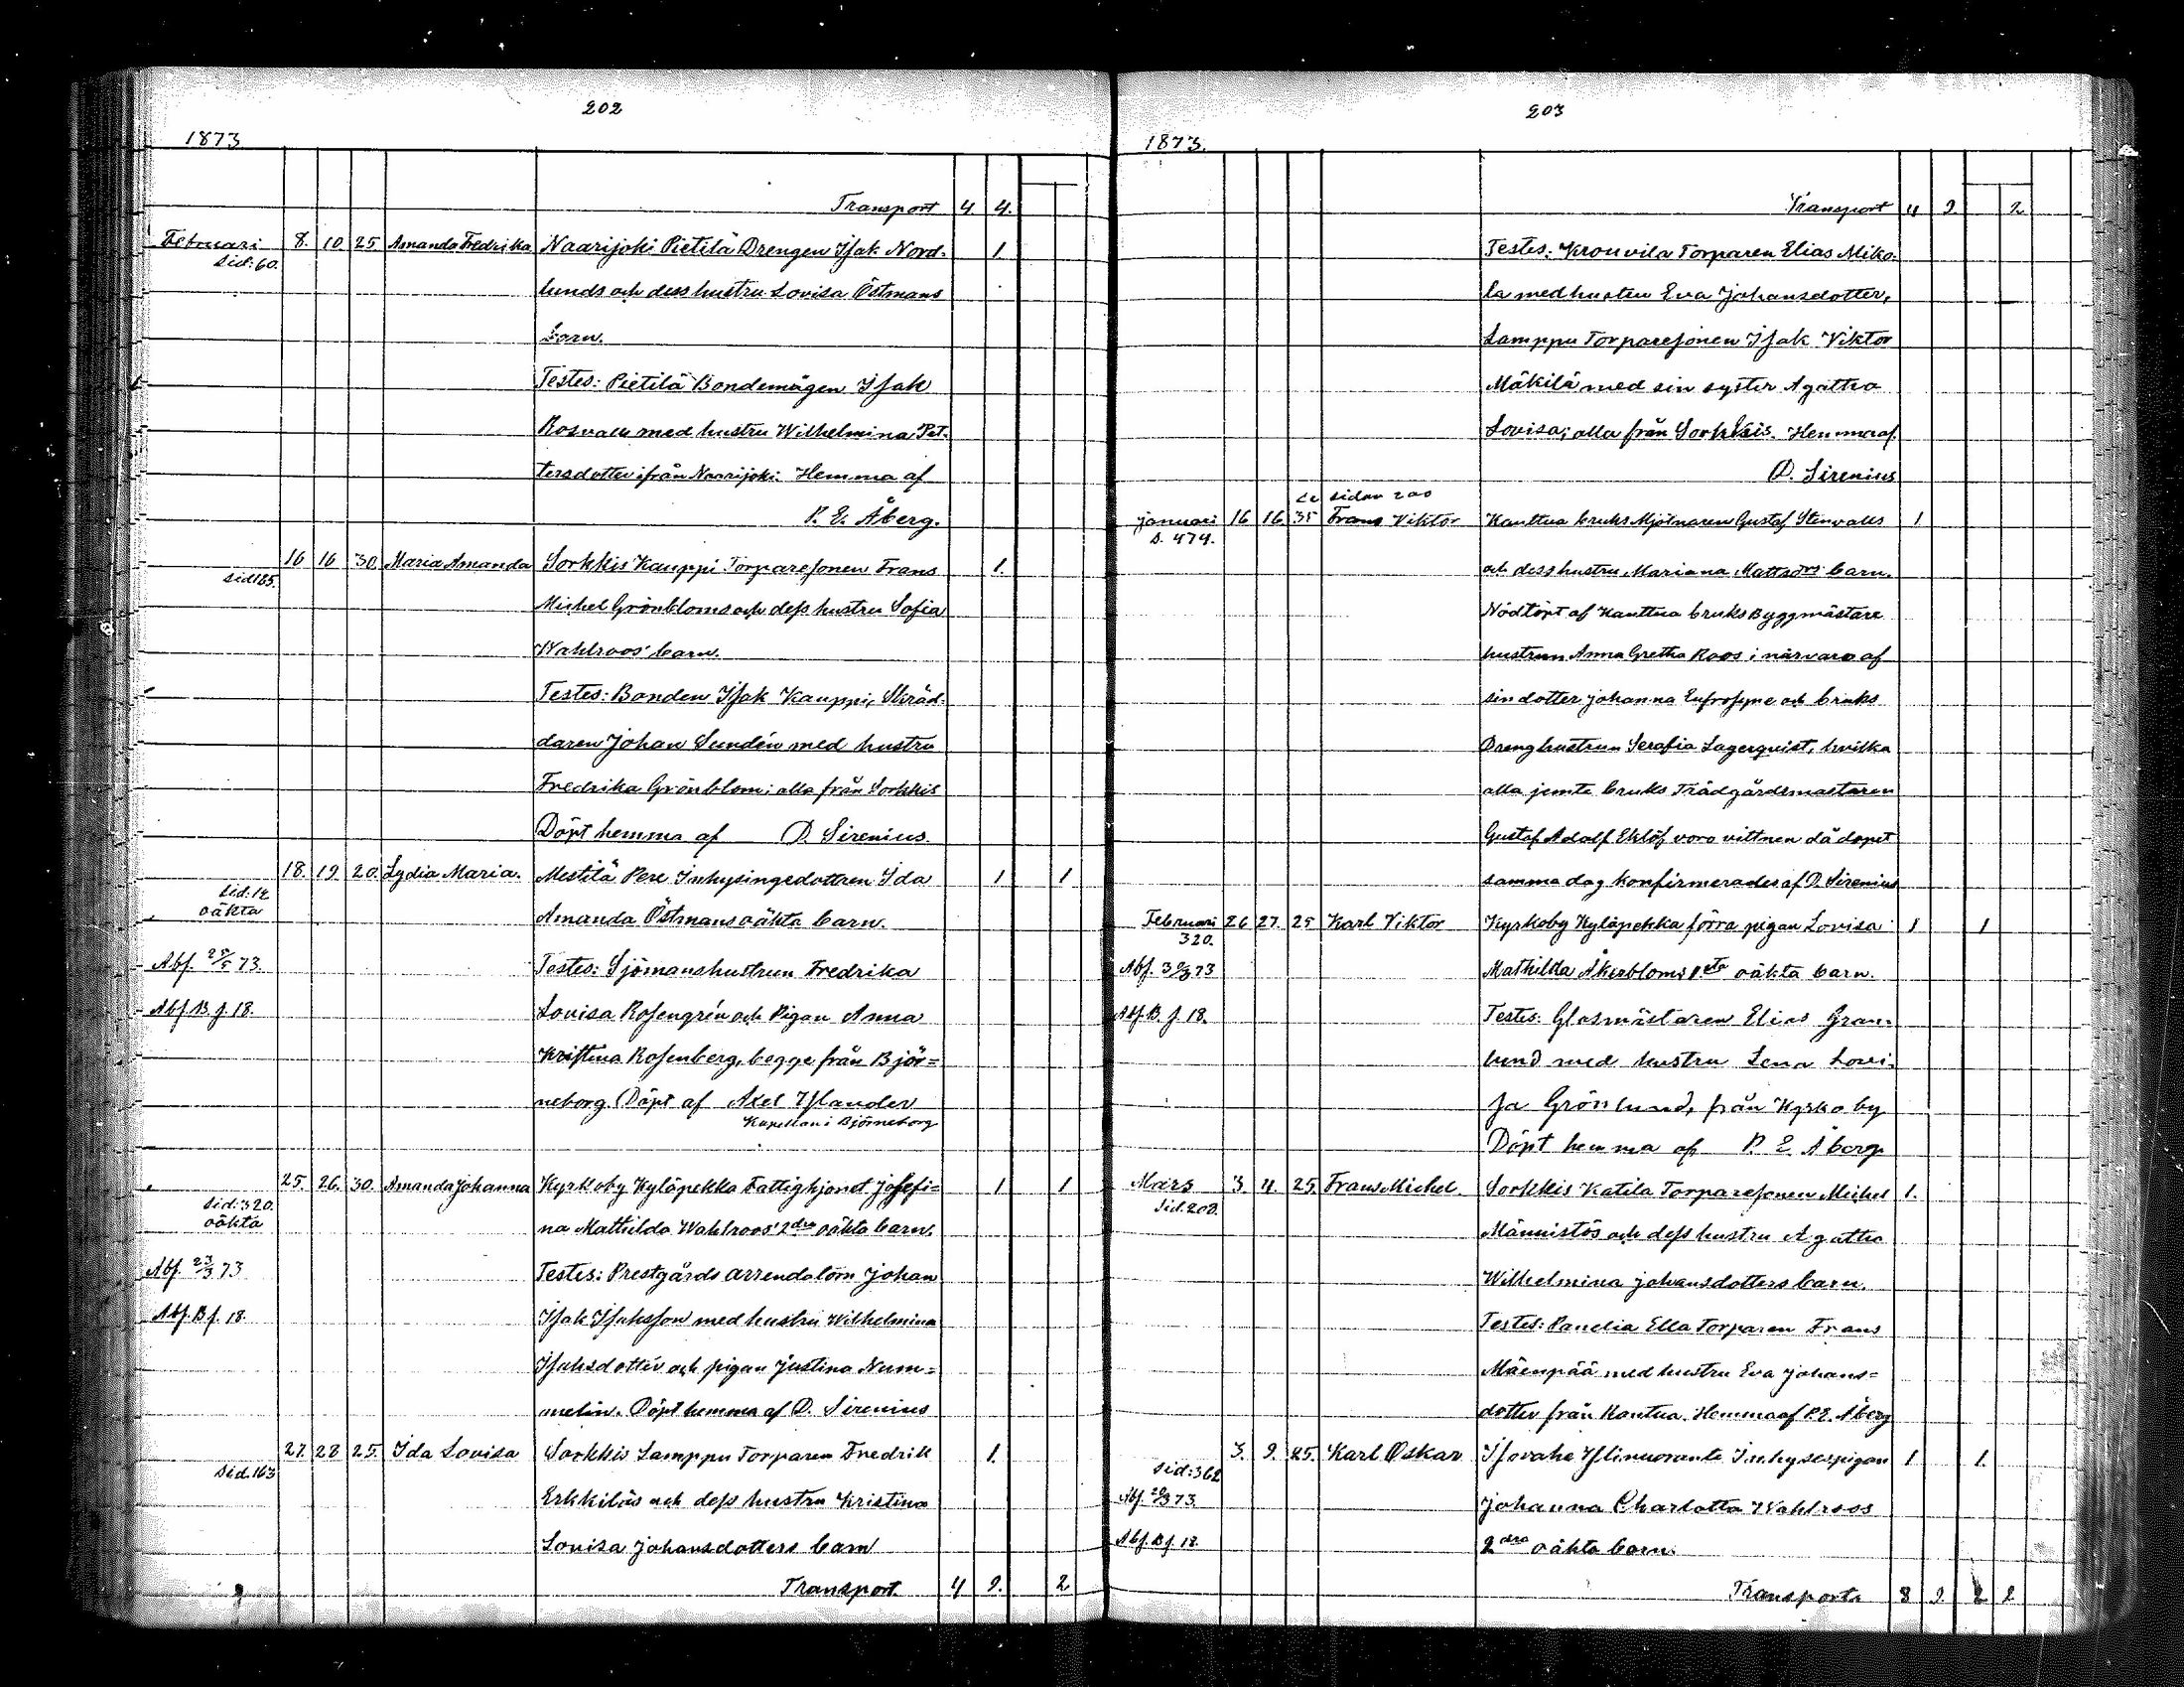 202
1873
Transport 4 4.
Februari 8. 10. 25 Amanda Fredrika Naarijoki Pietilä Drengen Isak Nord- 1.
Sid: 60. lunds och dess hustru Lovisa Östmans
barn.
Testes: Pietilä Bondemågen Isak
Rosvall med hustru Wilhelmina Pet-
tersdotter ifrån Naarijoki. Hemma af
P. E. Åberg.
16 16 30 Maria Amanda Sorkkis Kauppi Torparesonen Frans 1.
sid 185. Michel Grönbloms och dess hustru Sofia
Wahlroos' barn.
Testes: Bonden Isak Kauppi, Skräd-
daren Johan Sundén med hustru
Fredrika Grönblom; alla från Sorkkis
Döpt hemma af D. Sirenius.
18. 19. 20. Lydia Maria. Mestilä Pere Inhysingedottren Ida 1 1
sid. 12
oäkta Amanda Östmans oäkta barn.
Abf. 25/5 73. Testes: Sjömanshustrun Fredrika
Abf. B. f. 18. Lovisa Rosengrén och Pigan Anna
Kristina Rosenberg, begge från Björ=
neborg. Döpt af Axel Islander
Kapellan i Björneborg
25. 26. 30. Amanda Johanna Kyrkoby Kyläpekka Fattighjonet Josefi= 1 1
sid: 320.
oäkta na Mathilda Wahlroos' 2dra oäkta barn.
Abf. 23/3 73 Testes: Prestgårds arrendatorn Johan
Abf. B f. 18. Isak Isaksson med hustru Wilhelmina
Isaksdotter och pigan Justina Num=
melin. Döpt hemma af D. Sirenius
27. 28 25. Ida Lovisa Sorkkis Lamppu Torparen Fredrik 1.
sid. 163 Erkkiläs och dess hustru Kristina
Lovisa Johansdotters barn
Transport. 4 9. 2
203
1873.
Transport 4 9. 2
Testes: Krouvila Torparen Elias Miko-
la med hustru Eva Johansdotter,
Lamppu Torparesonen Isak Viktor
Mäkilä med sin syster Agatha
Lovisa; alla från Sorkkis. Hemma af
D. Sirenius
se sidan 200
Januari 16 16 35 Frans Viktor Kauttua bruks Mjölnaren Gustaf Stenvalls 1
s. 474. och dess hustru Mariana Mattsdrs barn.
Nöddöpt af Kauttua bruks Byggmästare
hustrun Anna Gretha Roos i närvaro af
sin dotter Johanna Eufrosyne och bruks
Dränghustrun Serafia Lagerquist, hvilka
alla jemte bruks Trädgårdsmastaren
Gustaf Adolf Eklöf voro vittnen då dopet
samma dag konfirmerades af D. Sirenius
Februari 26 27. 25 Karl Viktor Kyrkoby Kyläpekka förra pigan Lovisa 1 1
320. Mathilda Åkerbloms 1sta oäkta barn.
Abf. 30/3 73
Abf. B. f. 18. Testes: Glasmästaren Elias Gran-
lund med hustru Lena Lovi-
sa Grönlund, från Kyrkoby
Döpt hemma af P. E. Åberg
Mars 3. 4. 25. Frans Michel. Sorkkis Katila Torparesonen Michel 1.
Sid. 208. Männistös och dess hustru Agatha
Wilhelmina Johansdotters barn.
Testes: Panelia Ella Torparen Frans
Mäenpää med hustru Eva Johans=
dotter från Kautua. Hemma af P. E. Åberg
3. 9. 25. Karl Oskar Isovahe Ylinuorante Inhysespigan 1 1.
Sid: 362
Abf. 20/3 73 Johanna Charlotta Wahlroos
Abf. B f. 18. 2dra oäkta barn.
Transport. 8 9. 2 2